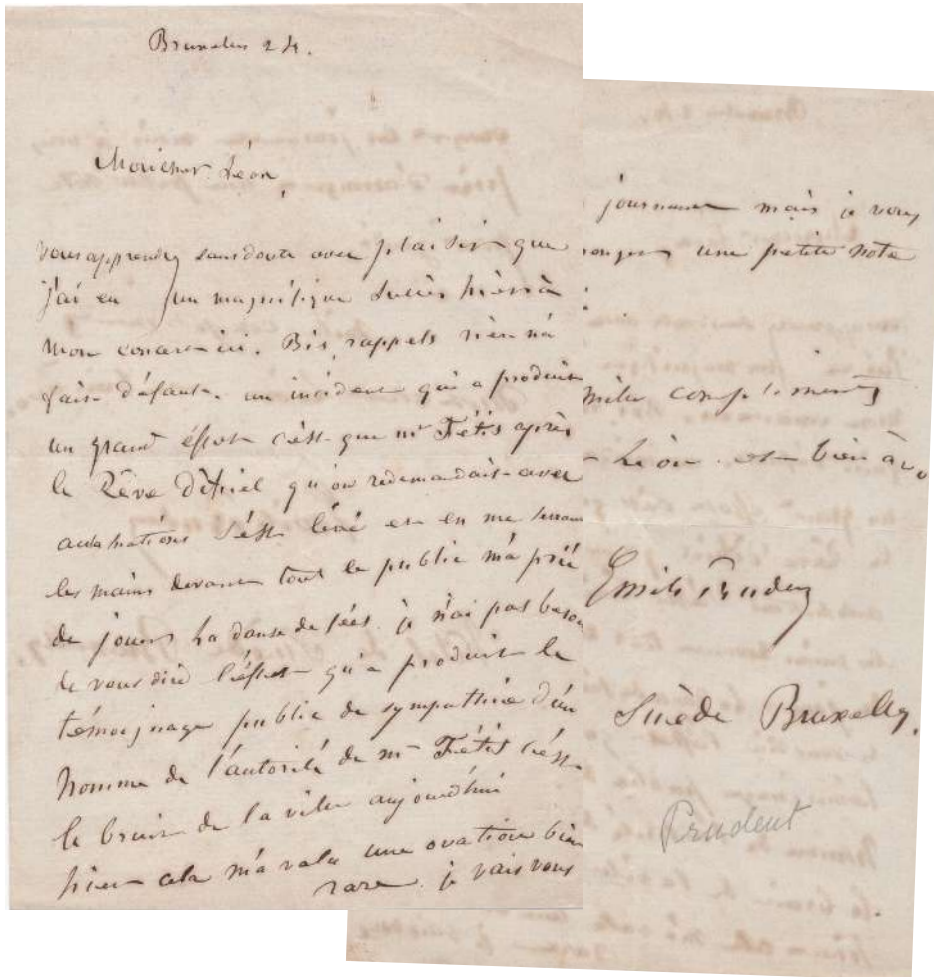 Bruxelles 24.
Mon cher Léon,
vous apprendrez sans doute avec plaisir que
j'ai eu un magnifique succès hier à
mon concert ici. Bis, rappels rien n'a
fait défaut. un incident qui a produit
un grand éffet c'est que mr Fétis après
le Rêve d'Ariel qu'on redemandait avec
acclamations s'est levé et en me serrant
les mains devant tout le public m'a prié
de jouer La danse des fées. je n'ai pas besoin
de vous dire l'éffet qu'a produit le
témoignage public de sympathie d'un
homme de l'autorité de mr Fétis c'est
le bruit de la ville aujourd'hui
cela m'a valu une ovation bien
rare. je vais vous
journaux mais je vous
une petite note
mille compliments
Léon et bien à vous
Emile Prudent
Suède Bruxelles.
Prudent